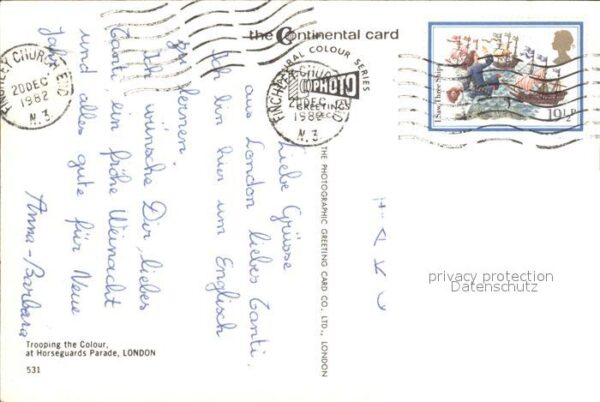 the Continental card
NATURAL COLOUR SERIES
PHOTO
GREETINGS
FINCHLEY CHURCH END
20 DEC
1982
N. 3
20 DEC
1982
N. 3
I Saw Three Ships
19½P
Liebe Grüsse
aus London liebes Tanti.
Ich bin hier um Englisch
zu lernen.
Ich wünsche Dir, liebes
Tanti ein frohe Weinacht
und alles gute für Neue
Jahr.
Anna-Barbara
THE PHOTOGRAPHIC GREETING CARD CO., LTD., LONDON
privacy protection
Datenschutz
Trooping the Colour,
at Horseguards Parade, LONDON
531